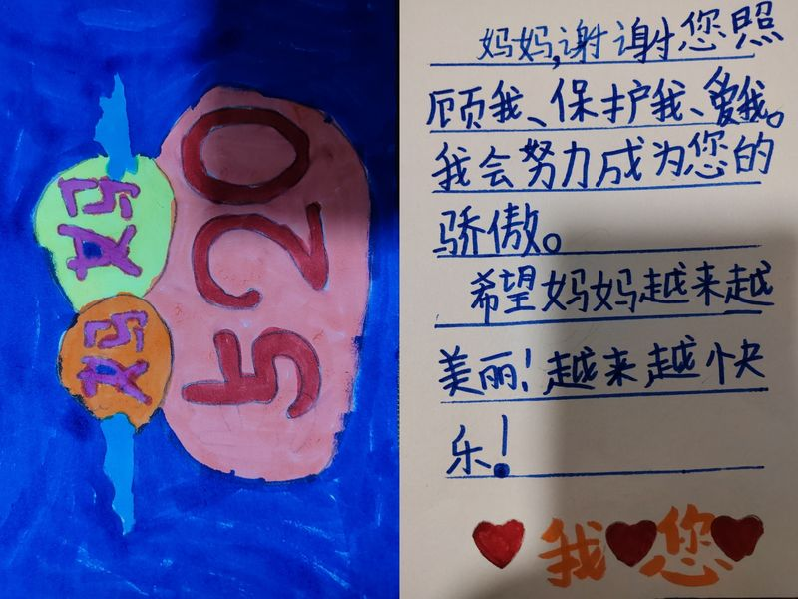 妈妈
520
妈妈,谢谢您照
顾我、保护我、爱我。
我会努力成为您的
骄傲。
希望妈妈越来越
美丽!越来越快
乐!
我 您